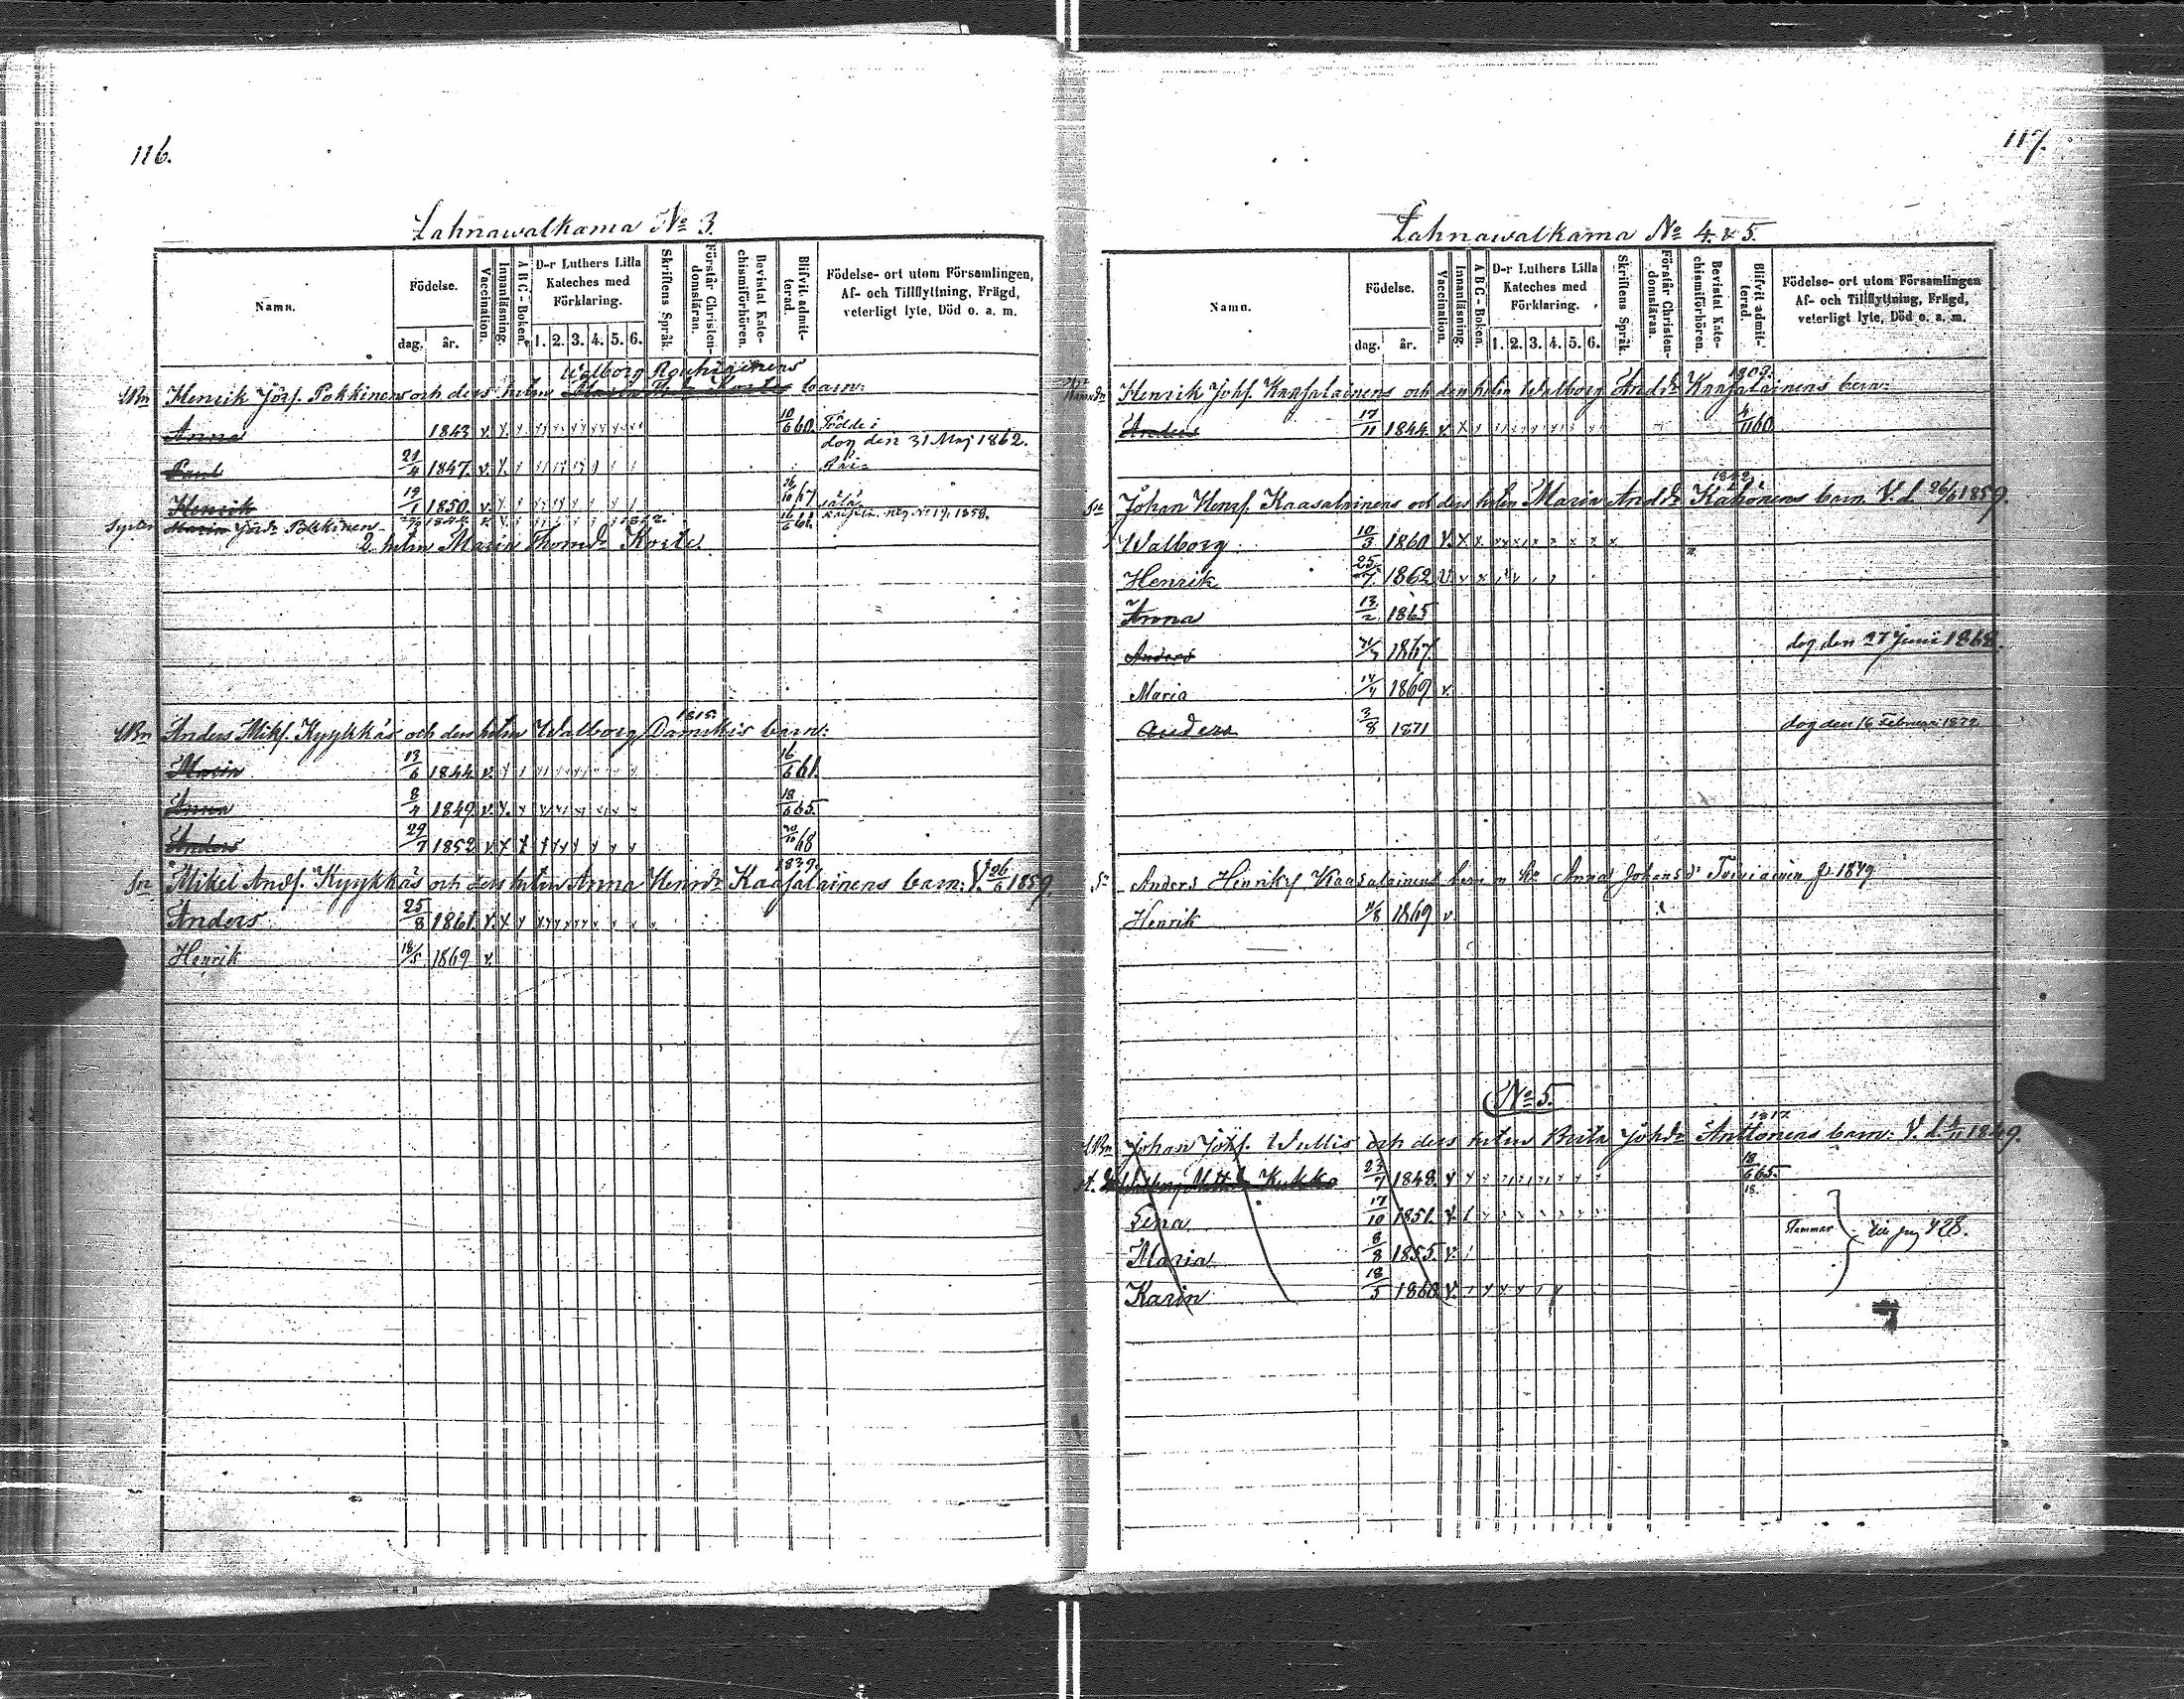 116.
Lahnawalkama No 3.
Namn.
Födelse.
dag. år.
Vaccination.
Innanläsning.
A B C - Boken.
D-r Luthers Lilla Kateches med Förklaring.
1. 2. 3. 4. 5. 6.
Skriftens Språk.
Förstår Christendomsläran.
Bevistat Katechismiförhören.
Blifvit admitterad.
Födelse- ort utom Församlingen,
Af- och Tillflyttning, Frägd,
veterligt lyte, Död o. a. m.
Walborg
Henrik Pokkinens och dess hstru barn:
Anna 1843 v. 10/6 60. Född i
dog den 31 Maj 1862.
Paul 21/4 1847. v.
Henrik 19/1 1850. v.
Maria Pokkinen
2 hstru Maria Thomdr Koste.
1815.
Anders Mikf. Kyykkäs och dess hstru Walborg barn:
Maria 13/6 1844. v. 16/6 61.
Anna 8/4 1849. v. 18/6 65.
Anders 29/7 1852 v 68
1839.
Mikel Andf. Kyykkäs och dess hstru Anna Henrdr Kaasalainens barn: V. 26/6 1859.
Anders 25/8 1861. v.
Henrik 18/5 1869 v.
117.
Lahnawalkama No 4. & 5.
Namn.
Födelse.
dag. år.
Vaccination.
Innanläsning.
A B C - Boken.
D-r Luthers Lilla Kateches med Förklaring.
1. 2. 3. 4. 5. 6.
Skriftens Språk.
Förstår Christendomsläran.
Bevistat Katechismiförhören.
Blifvit admitterad.
Födelse- ort utom Församlingen
Af- och Tillflyttning, Frägd,
veterligt lyte, Död o. a. m.
1809.
Henrik Johf. Kaasalainens och dess hstru Walborg Andrdr Kaasalainens barn:
Anders 17/11 1844. v. 4/11 60
1842.
Johan Henrf. Kaasalainens och dess hstru Maria Anddr Kähönens barn V. d. 26/6 1859.
Walborg 10/3 1860 v.
Henrik 25/7 1862 v
Anna 13/2 1865
Anders 1867 dog den 27 Juni 1868.
Maria 14/4 1869 v.
Anders 3/8 1871 dog den 16 Februari 1872
Anders Henrikf Kaasalainens barn m. h. Anna Johansdr Toiviainen f. 1849
Henrik 11/8 1869 v
No 5.
1817.
Johan Johf. Wullis och dess hstru Brita Johdr Anttonens barn: V. d. 1849.
Kukko 23/7 1848. v 18/6 65.
Lena 17/10 1851. v.
Maria 8/8 1855. v.
Karin 18/5 1860 v.
428.